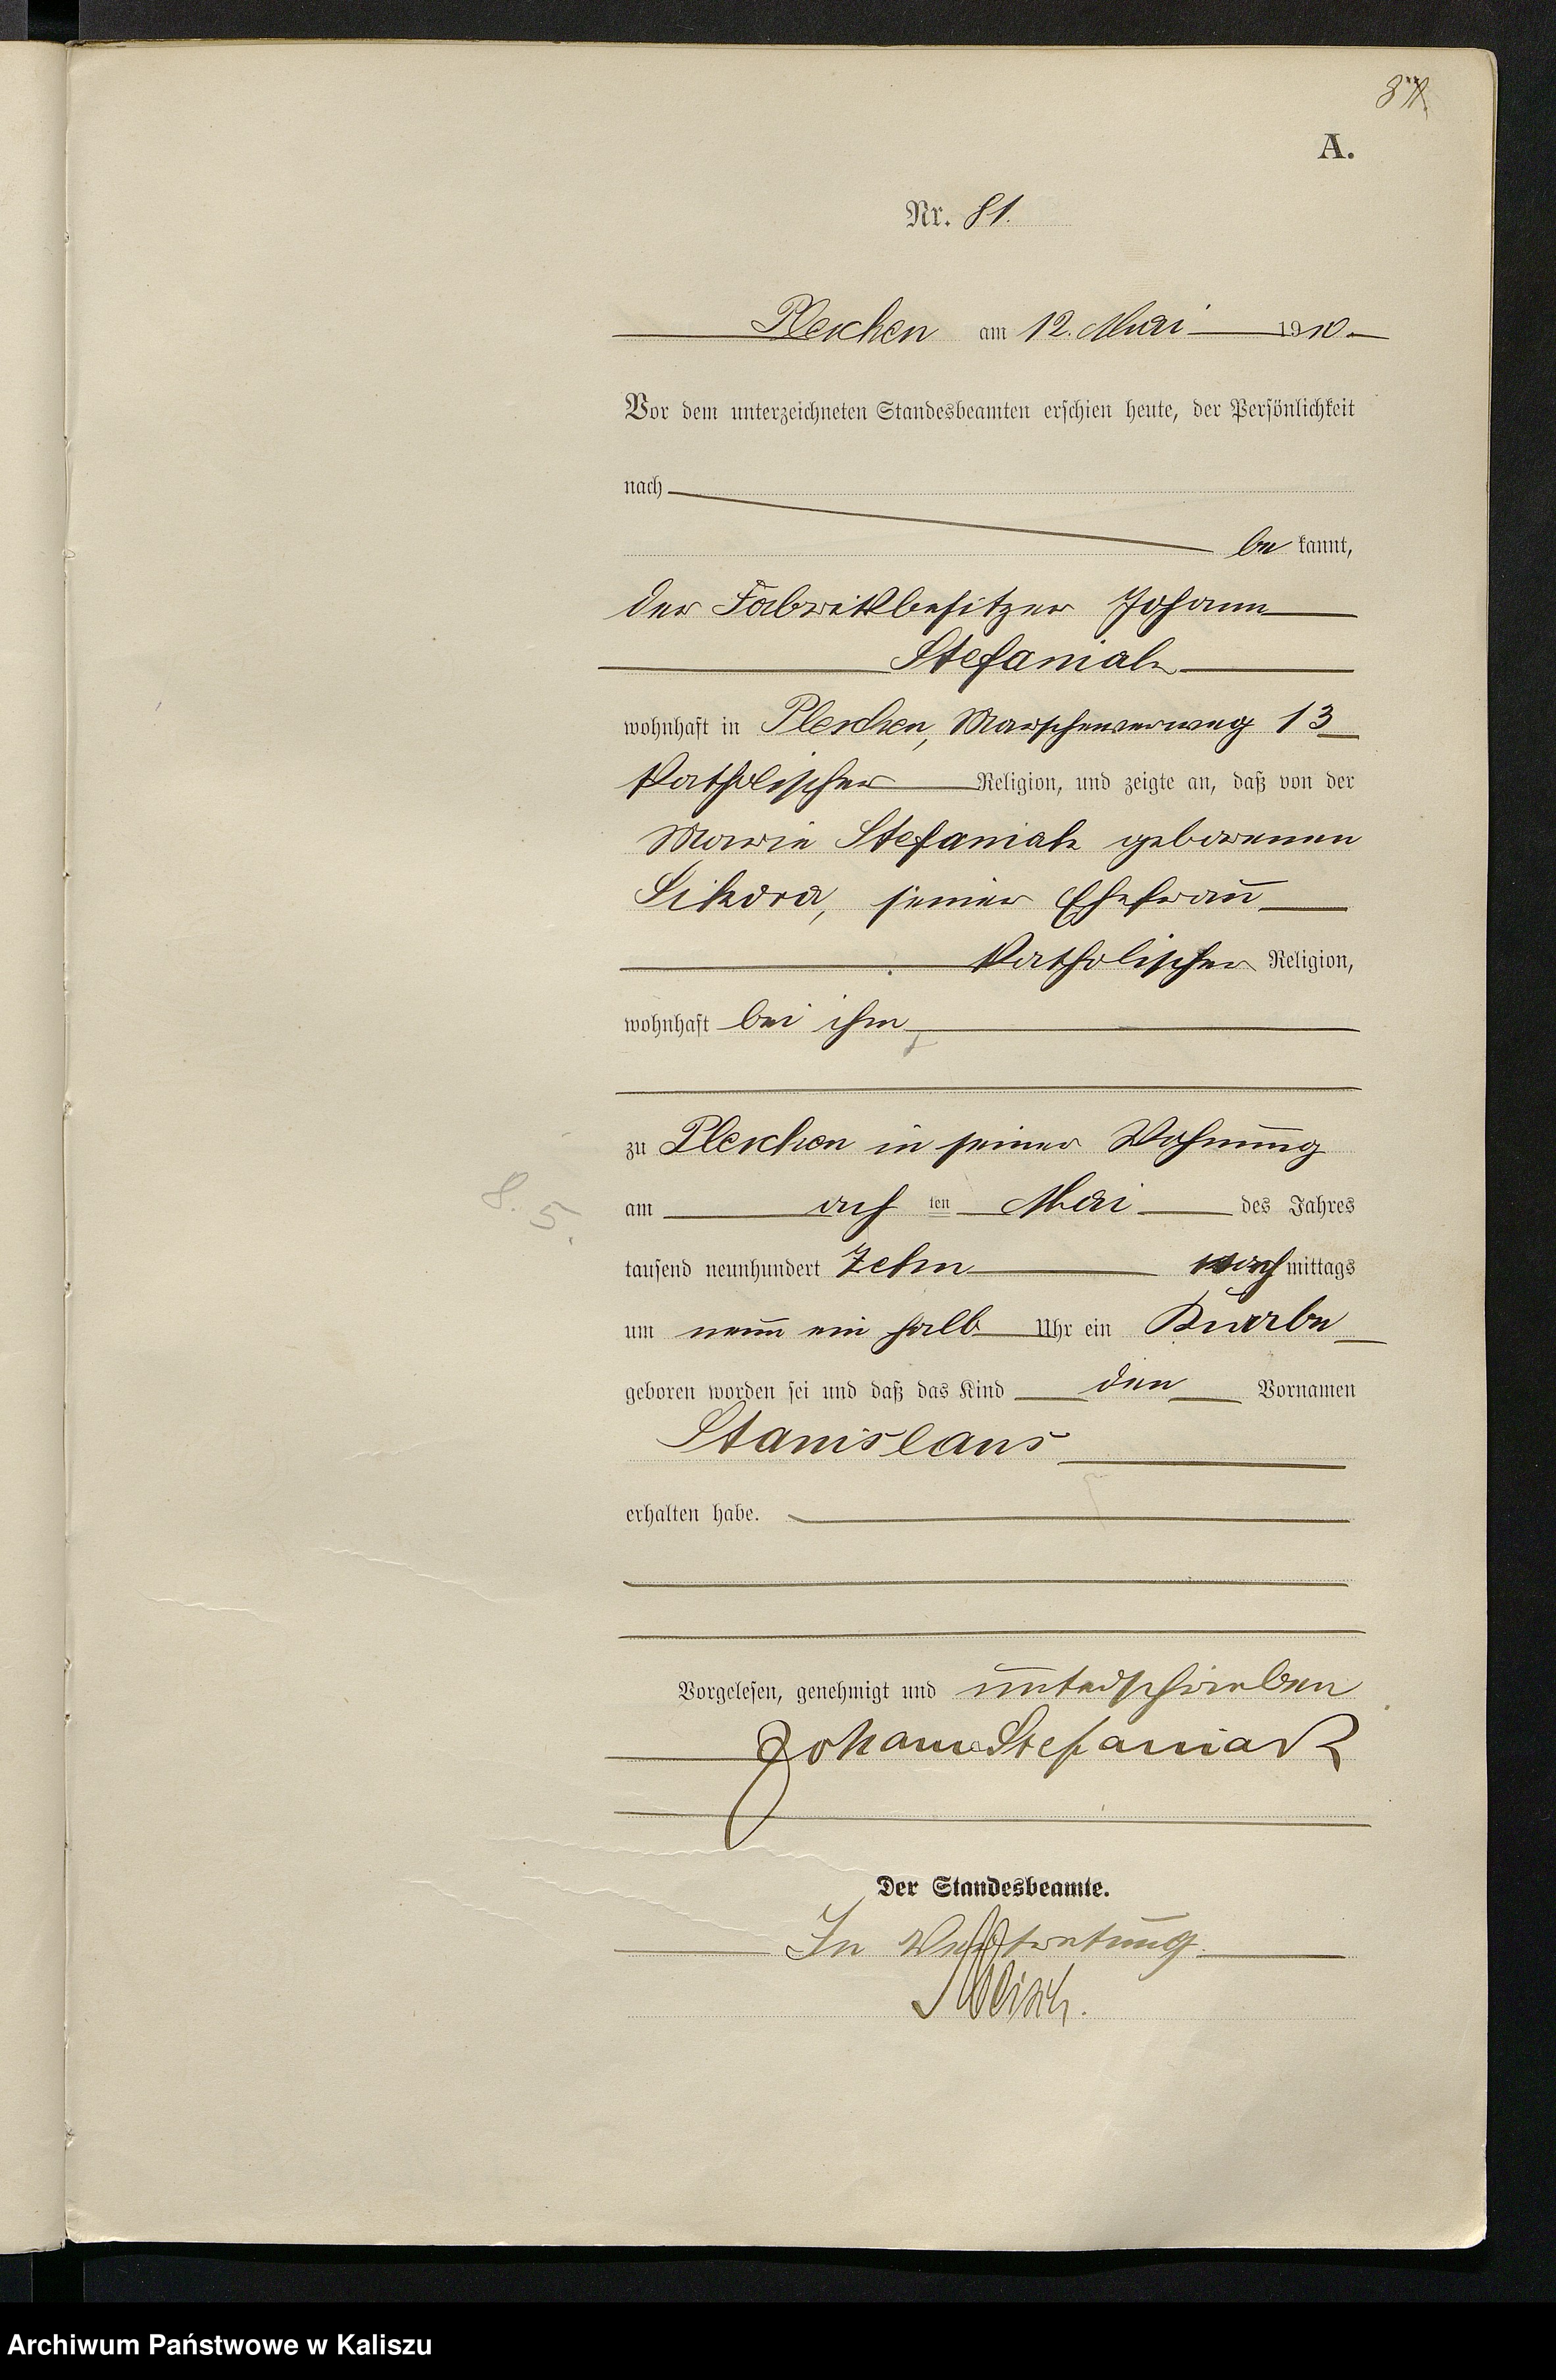 A.
Nr. 81.
Pleschen am 12. Mai 1910.
Vor dem unterzeichneten Standesbeamten erschien heute, der Persönlichkeit
nach
be kannt,
der Fabrikbesitzer Johann
Stefaniak
wohnhaft in Pleschen, 13
katholischer Religion, und zeigte an, daß von der
Marie Stefaniak geborenen
Sikora, seiner Ehefrau
katholischer Religion,
wohnhaft bei ihm
zu Pleschen in seiner Wohnung
8. 5.
am acht ten Mai des Jahres
tausend neunhundert zehn nachmittags
um neun ein halb Uhr ein Knabe
geboren worden sei und daß das Kind den Vornamen
Stanislaus
erhalten habe.
Vorgelesen, genehmigt und unterschrieben
Johann Stefaniak
Der Standesbeamte.
In Vertretung
Archiwum Państwowe w Kaliszu